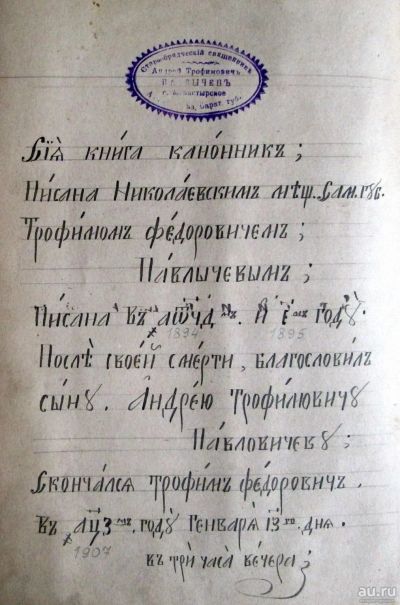 Старообрядческій священникъ
Андрей Трофимовичъ
Сарат. губ.
Сїѧ̀ кни́га кано́нникъ ;
Пи́сана Никола́евскимъ мѣщ. Сам. губ.
Трофи́момъ ѳе́доровичемъ ;
Па́влычевымъ ;
Пи́сана въ ҂аѿчд мъ. И е҃ мъ году̀.
1894 1895
Послѣ̀ свое́й сме́рти, благослови́лъ
сы́ну. Андре́ю Трофи́мовичу
Па́вловичеву ;
Сконча́лсѧ трофи́мъ ѳе́доровичъ.
въ ҂ацз мъ. году̀ Генварѧ̀ і҃г го. днѧ.
1907
въ трѝ часа̀ ве́чера ;
au.ru